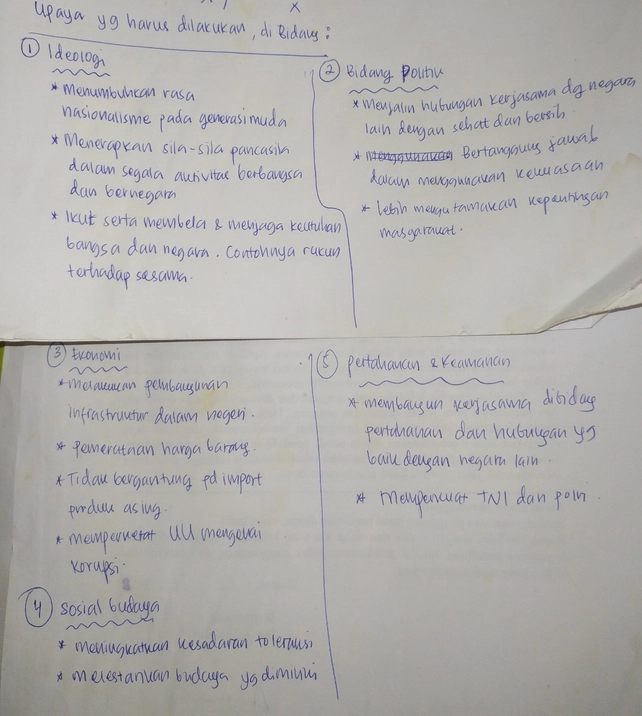 Upaya yg harus dilakukan, di Bidang :
① Ideologi
* Menumbuhkan rasa
nasionalisme pada generasi muda
* Menerapkan sila-sila pancasila
dalam segala aktivitas berbangsa
dan bernegara
* Ikut serta membela & menjaga keutuhan
bangsa dan negara. Contohnya rukun
terhadap sesama.
② Bidang Politik
* Menjalin hubungan kerjasama dg negara
lain dengan sehat dan bersih.
* Bertanggung jawab
dalam menggunakan kekuasaan
* lebih mengutamakan kepentingan
masyarakat.
③ Ekonomi
* melakukan pembangunan
infrastruktur dalam negeri.
* pemerataan harga barang.
* Tidak bergantung pd import
produk asing.
* memperketat UU mengenai
korupsi.
④ Sosial budaya
* meningkatkan kesadaran toleransi
* melestarikan budaya yg dimiliki
⑤ pertahanan & keamanan
* membangun kerjasama dibidang
pertahanan dan hubungan yg
baik dengan negara lain.
* memperkuat TNI dan polri.